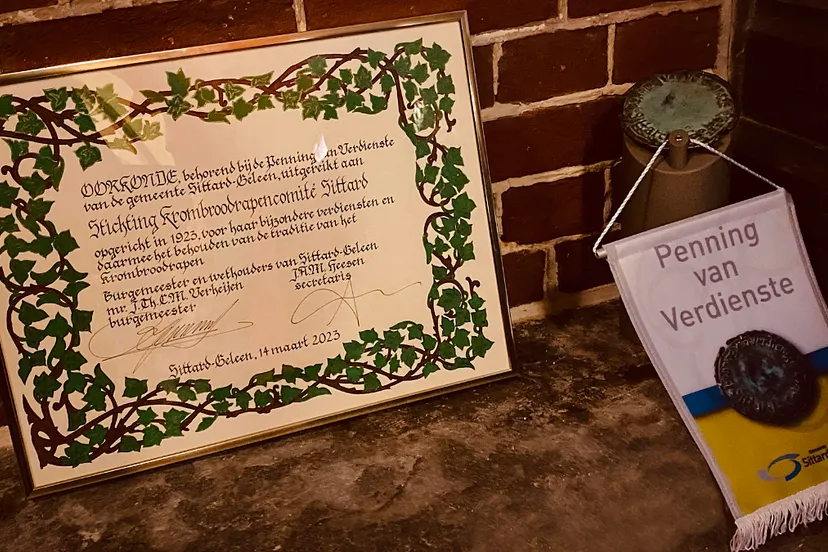 OORKONDE, behorend bij de Penning van Verdienste
van de gemeente Sittard-Geleen, uitgereikt aan
Stichting Krombroodrapencomité Sittard
opgericht in 1923, voor haar bijzondere verdiensten en
daarmee het behouden van de traditie van het
Krombroodrapen
Burgemeester en wethouders van Sittard-Geleen
mr. J.Th.C.M. Verheijen
burgemeester
J.H.M. Heesen
secretaris
Sittard-Geleen, 14 maart 2023
Penning
van
Verdienste
Sittard